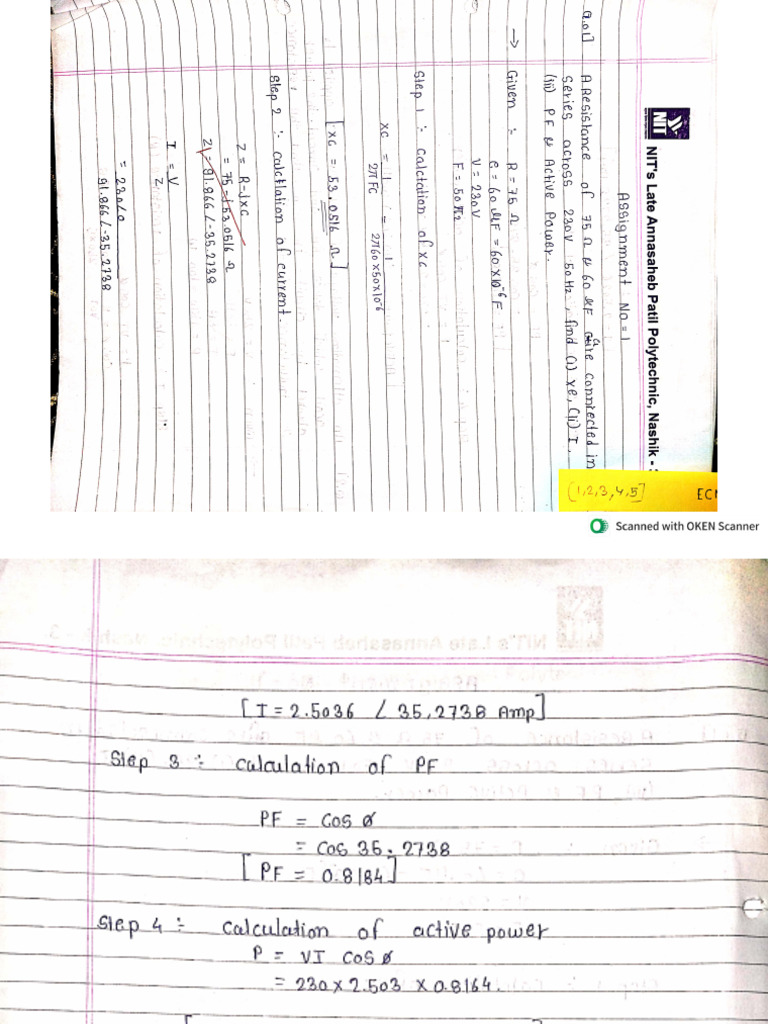 NIT
NIT's Late Annasaheb Patil Polytechnic, Nashik -
Assignment No = 1
Q.01] A Resistance of 75 Ω & 60 μF are connected in
series across 230V 50Hz, find (i) xc, (ii) I,
(iii) PF & Active Power.
→ Given :- R = 75 Ω
C = 60 μF = 60 x 10⁻⁶ F
V = 230V
F = 50 Hz
Step 1 :- Calctation of xc
xc = 1 / 2πFC = 1 / 2π60 x 50 x 10⁻⁶
[xc = 53.0516 Ω]
Step 2 :- calctlation of current.
Z = R - jxc
= 75 - j 53.0516 Ω
Z = 91.866 ∠ -35.2738
I = V / Z
= 230∠0 / 91.866 ∠ -35.2738
[1,2,3,4,5]
Scanned with OKEN Scanner
[I = 2.5036 ∠ 35.2738 Amp]
Step 3 :- calculation of PF
PF = cos ø
= cos 35.2738
[PF = 0.8184]
Step 4 :- calculation of active power
P = VI cos ø
= 230 x 2.503 x 0.8164.